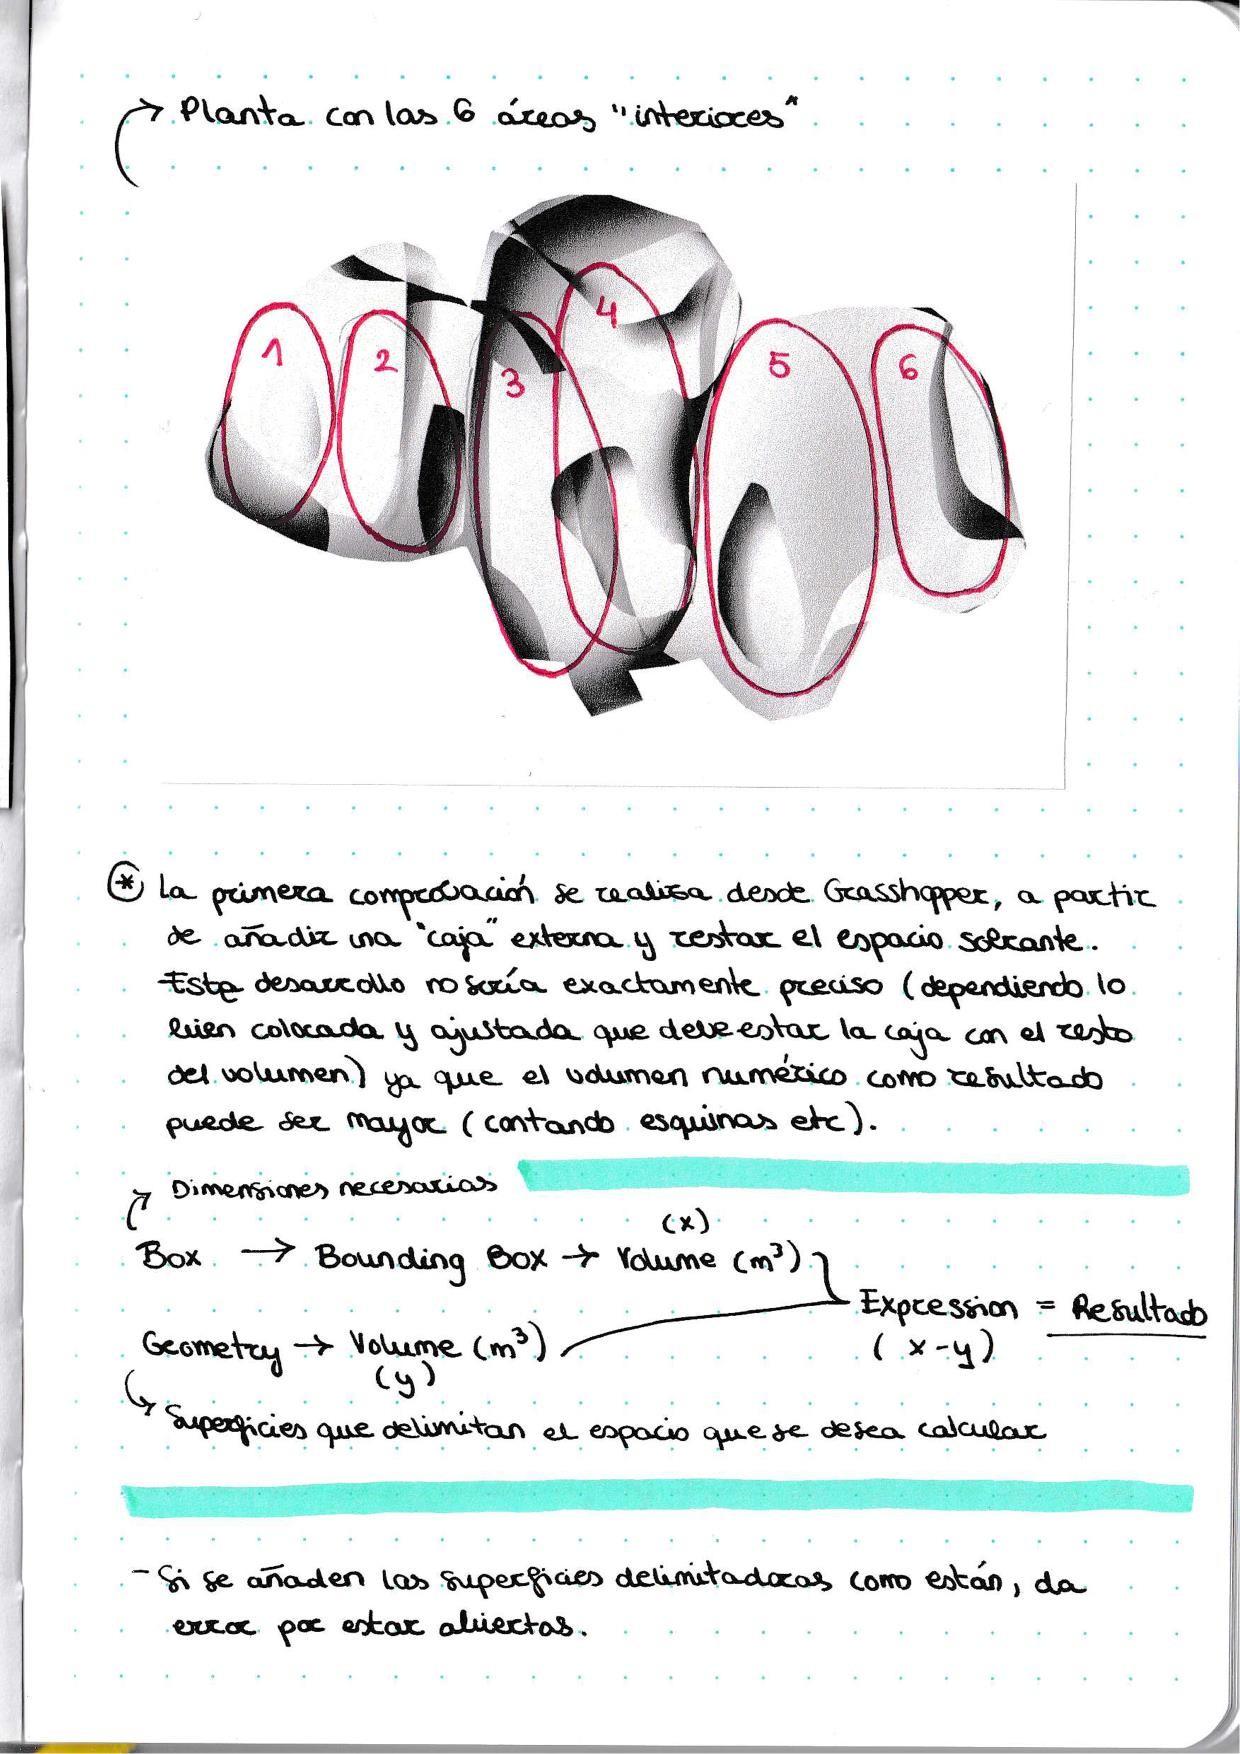 → Planta con las 6 áreas "interiores"
1 2 3 4 5 6
* La primera comprobación se realiza desde Grasshopper, a partir
de añadir una "caja" externa y restar el espacio sobrante.
Este desarrollo no sería exactamente preciso (dependiendo lo
bien colocada y ajustada que debe estar la caja con el resto
del volumen) ya que el volumen numérico como resultado
puede ser mayor (contando esquinas etc).
Dimensiones necesarias
(x)
Box → Bounding Box → Volume (m³)
Expression = Resultado
Geometry → Volume (m³)
(x-y)
(y)
Superficies que delimitan el espacio que se desea calcular
- Si se añaden las superficies delimitadoras como están, da
error por estar abiertas.